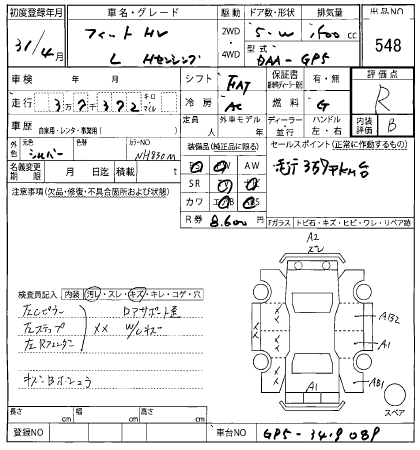 初度登録年月 車名・グレード 駆動 ドア数・形状 排気量 出品NO
31/4月 フィット HV 2WD 5・W 1500cc 548
L Hセンシング 4WD 型式 DAA-GP5
車検 年 月 シフト FAT 保証書 有・無 評価点
走行 3万7千372 キロ マイル 冷房 AC 燃料 G R
車歴 自家用・レンタ・事業用( ) 定員 人 外車モデル 年 ディーラー 並行 ハンドル 左・右 内装評価 B
外色 元色 シルバー 色替 カラーNO NH830M 装備品(純正品に限る) セールスポイント(正常に作動するもの)
名義変更期限 月 日迄 積載 t AW 走行37千km台
注意事項(欠品・修復・不具合箇所および状態) SR
カワ
R券 8,600 Fガラス トビ石・キズ・ヒビ・ワレ・リペア跡
A2
ズレ
検査員記入 内装 汚レ・スレ・キズ・キレ・コゲ・穴
左Cピラー
左ステップ ×× W/レキズ AB2
左Rフェンダー A1
A1 AB1
スペア
長さ cm 幅 cm 高さ cm
登録NO 車台NO GP5-3419089